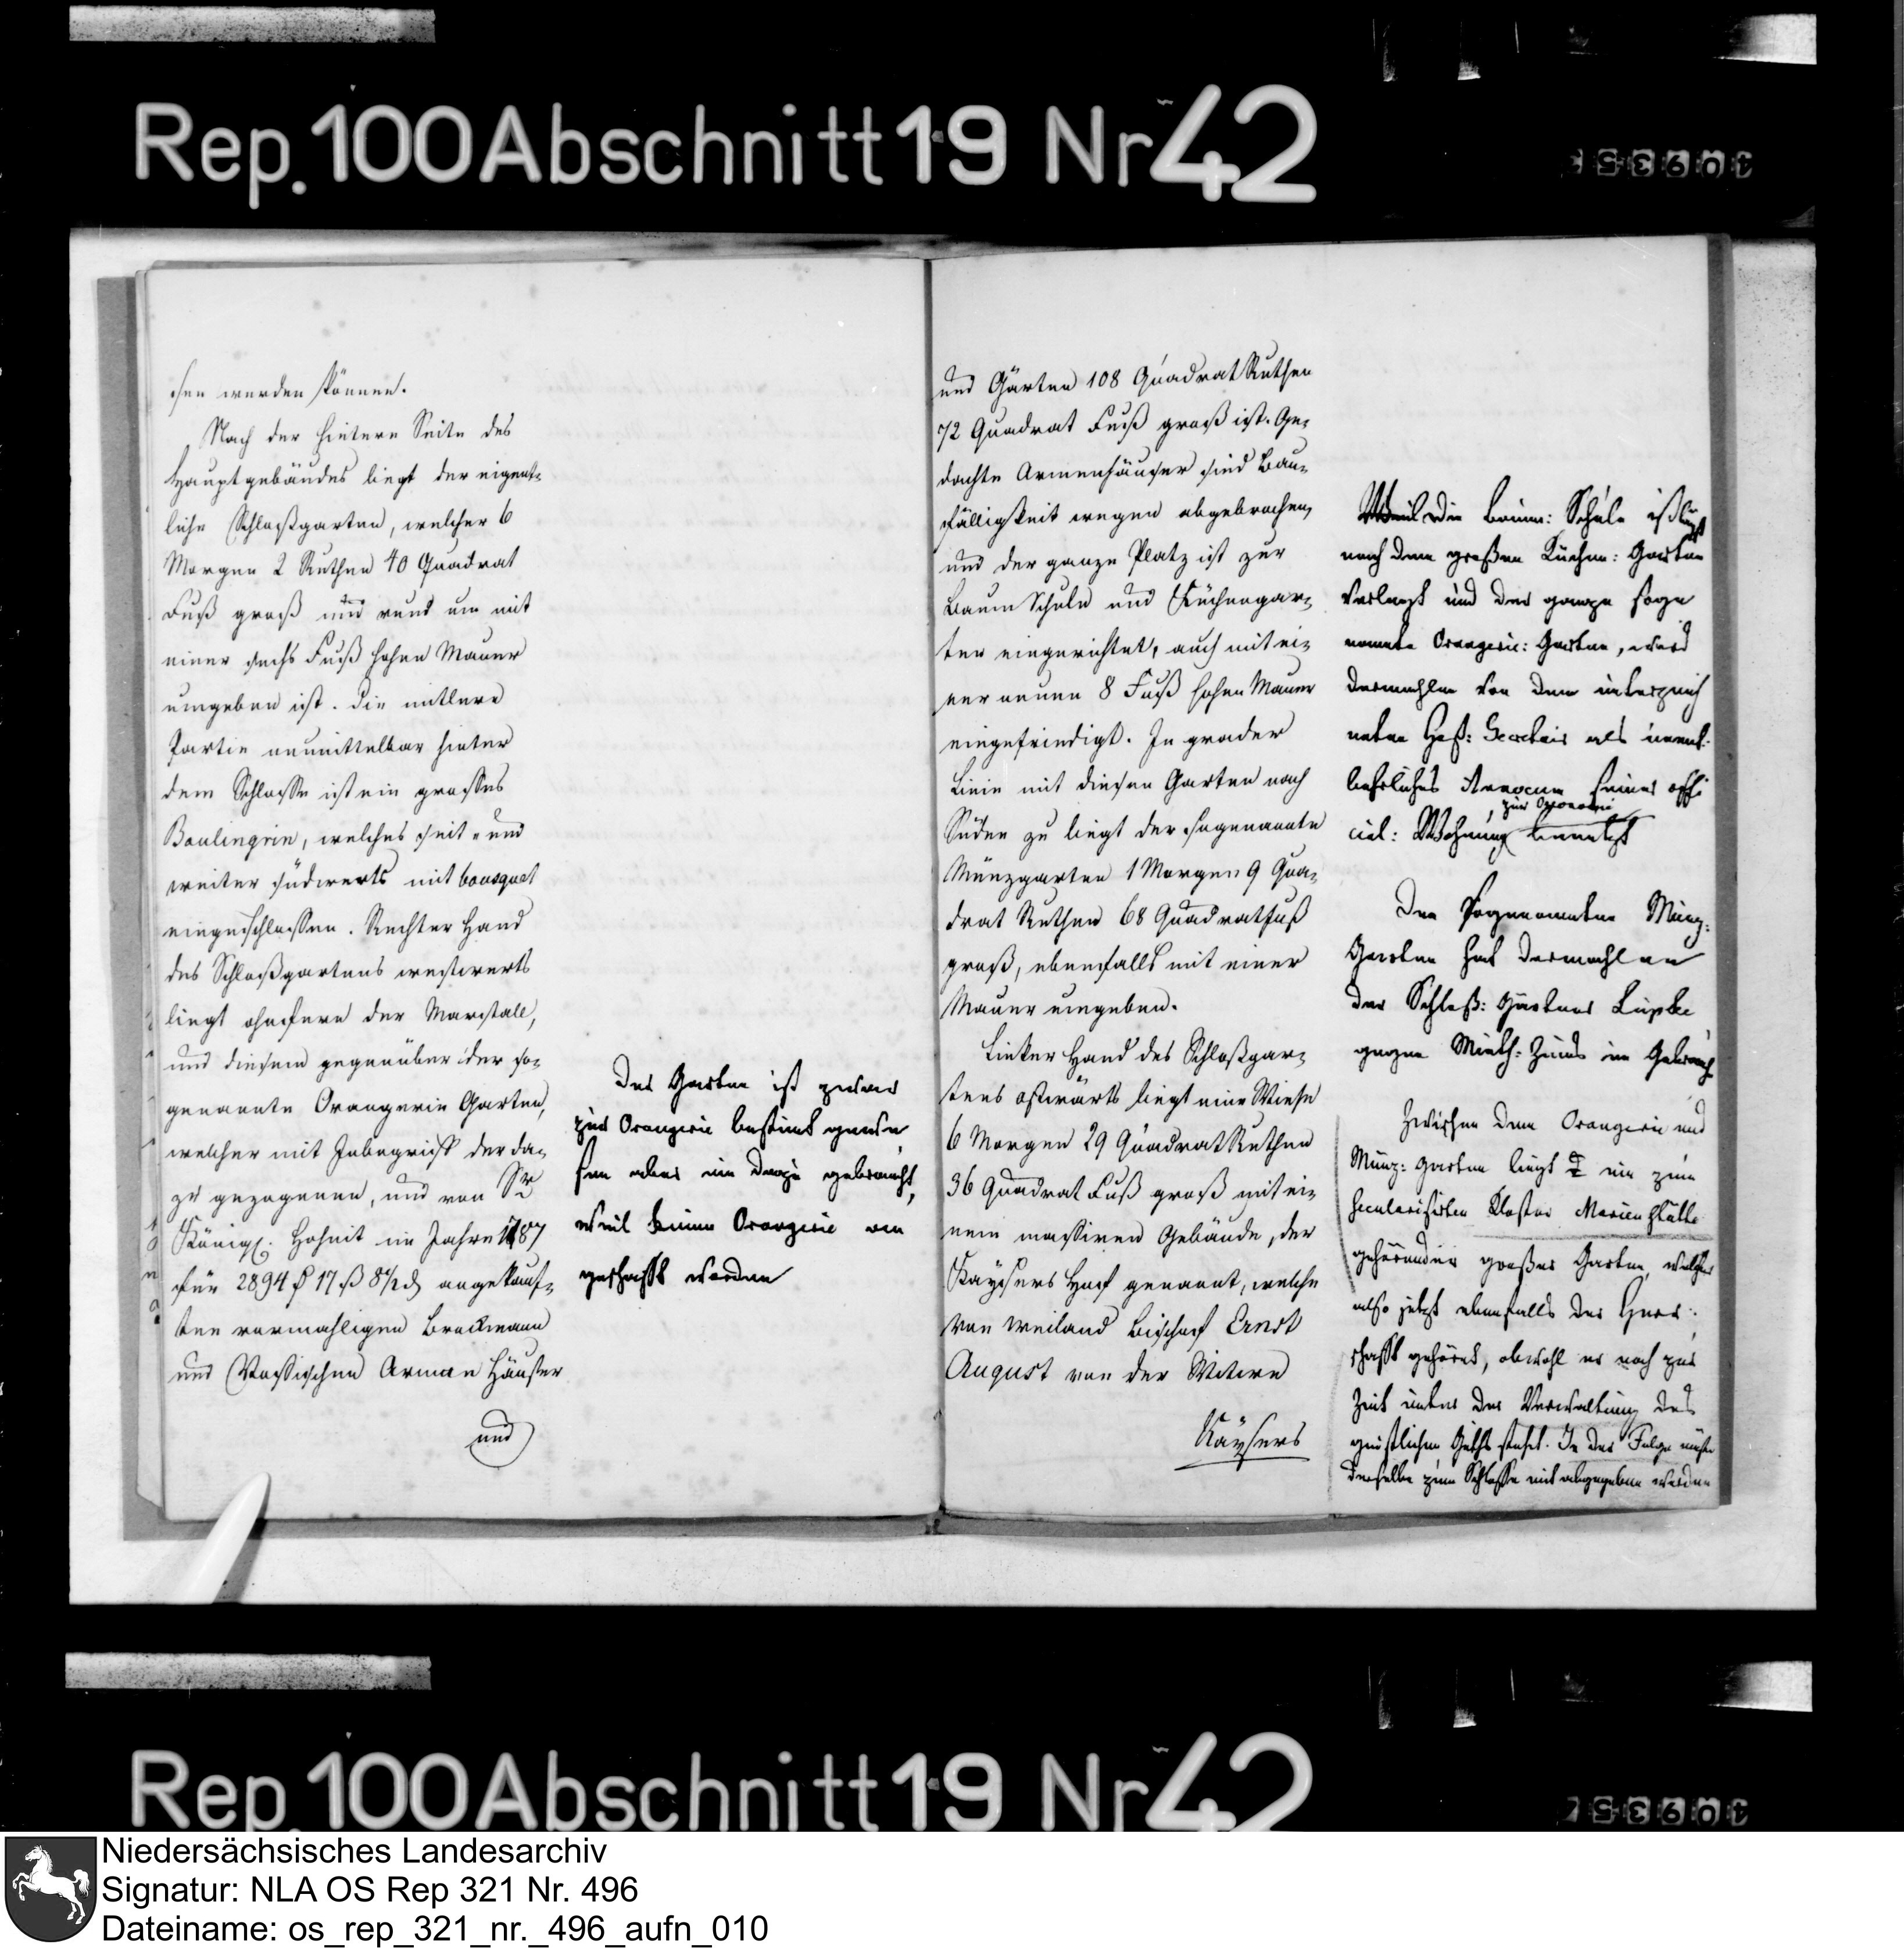 Rep.100 Abschnitt 19 Nr 42
sen werden können.
Nach der hintere Seite des
Hauptgebäudes liegt der eigent-
liche Schloßgarten, welcher 6
Morgen 2 Ruthen 40 Quadrat
Fuß groß und rund um mit
einer sechs Fuß hohen Mauer
umgeben ist. Die mitlere
Partie unmittelbar hinter
dem Schlosse ist ein grosses
Boulingrin, welches seit- und
weiter südwerts mit bousquet
eingeschlossen. Rechter Hand
des Schloßgartens westwerts
liegt ohnfern der Marstall,
und diesem gegenüber der so-
genannte Orangerie Garten,
welcher mit Inbegriff der da-
zu gezogenen, und von Sr
Königl. Hoheit im Jahre 1787
für 2894 17 ß 8 1/2 d angekauf-
ten vormahligen Brockmann
und Vossischen Armen Häuser
und
Der Garten ist zwar
zur Orangerie bestimt gewe
sen aber nie dazu gebraucht,
weil keine Orangerie an
geschafft worden
und Gärten 108 Quadrat Ruthen
72 Quadrat Fuß groß ist. Ge-
dachte Armenhäuser sind Bau-
fälligkeit wegen abgebrochen,
und der ganze Platz ist zur
Baum Schule und Küchengar-
ten eingerichtet, auch mit ei-
ner neuen 8 Fuß hohen Mauer
eingefriedigt. In grader
Linie mit diesen Garten nach
Süden zu liegt der sogenannte
Münzgarten 1 Morgen 9 Qua-
drat Ruthen 68 Quadratfuß
groß, ebenfalls mit einer
Mauer umgeben.
Linker Hand des Schloßgar-
tens ostwärts liegt eine Wiese
6 Morgen 29 Quadrat Ruthen
36 Quadrat Fuß groß mit ei-
nem massiven Gebäude, der
Kaysers Hof genannt, welche
von weiland Bischof Ernst
August von der Witwe
Kaysers
Die Baum: Schule ist
nach dem großen Küchen: Garten
verlegt und der ganze soge
nannte Orangerie: Garten, wird
dermahlen von dem unterzeich
neten Secretair als unent-
behrliches Annexum seiner offi
zur Oeconomie
ciel: Wohnung benutzt
Den sogenannten Münz-
Garten hat dermahlen
der Schloß: Gärtner Lüpke
gegen Mieth: Zins im Gebrauch
Zwischen dem Orangerie und
Münz: garten liegt ein zum
secularisirten Kloster Marienstätte
gehörender großer Garten, welcher
also jetzt ebenfalls der Herr-
schafft gehöret, obwohl er noch zur
Zeit unter der Verwaltung des
geistlichen Guths stehet. In der Folge müßte
derselbe zum Schlosse mit abgegeben werden
Rep.100 Abschnitt 19 Nr 42
Niedersächsisches Landesarchiv
Signatur: NLA OS Rep 321 Nr. 496
Dateiname: os_rep_321_nr._496_aufn_010